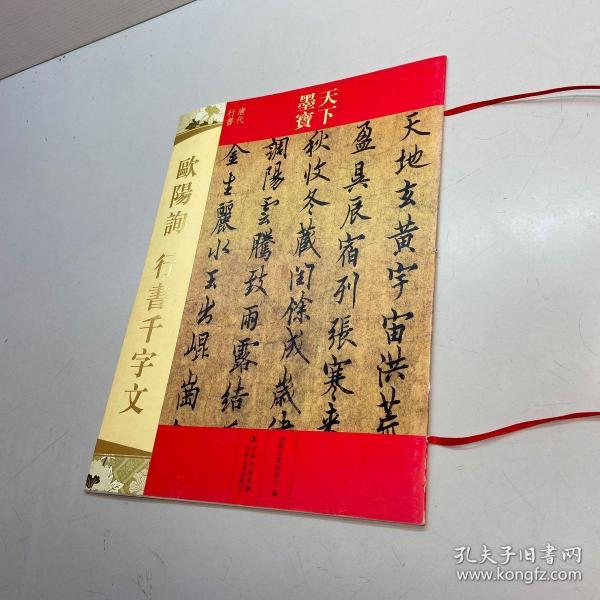 天下
墨寶
唐代
行書
歐陽詢 行書千字文
天地玄黄宇宙洪荒
盈昃辰宿列張寒来
秋收冬蔵閏餘成歲律
調陽雲騰致雨露結
金生麗水玉出崐崗
孔夫子旧书网
www.kongfz.com